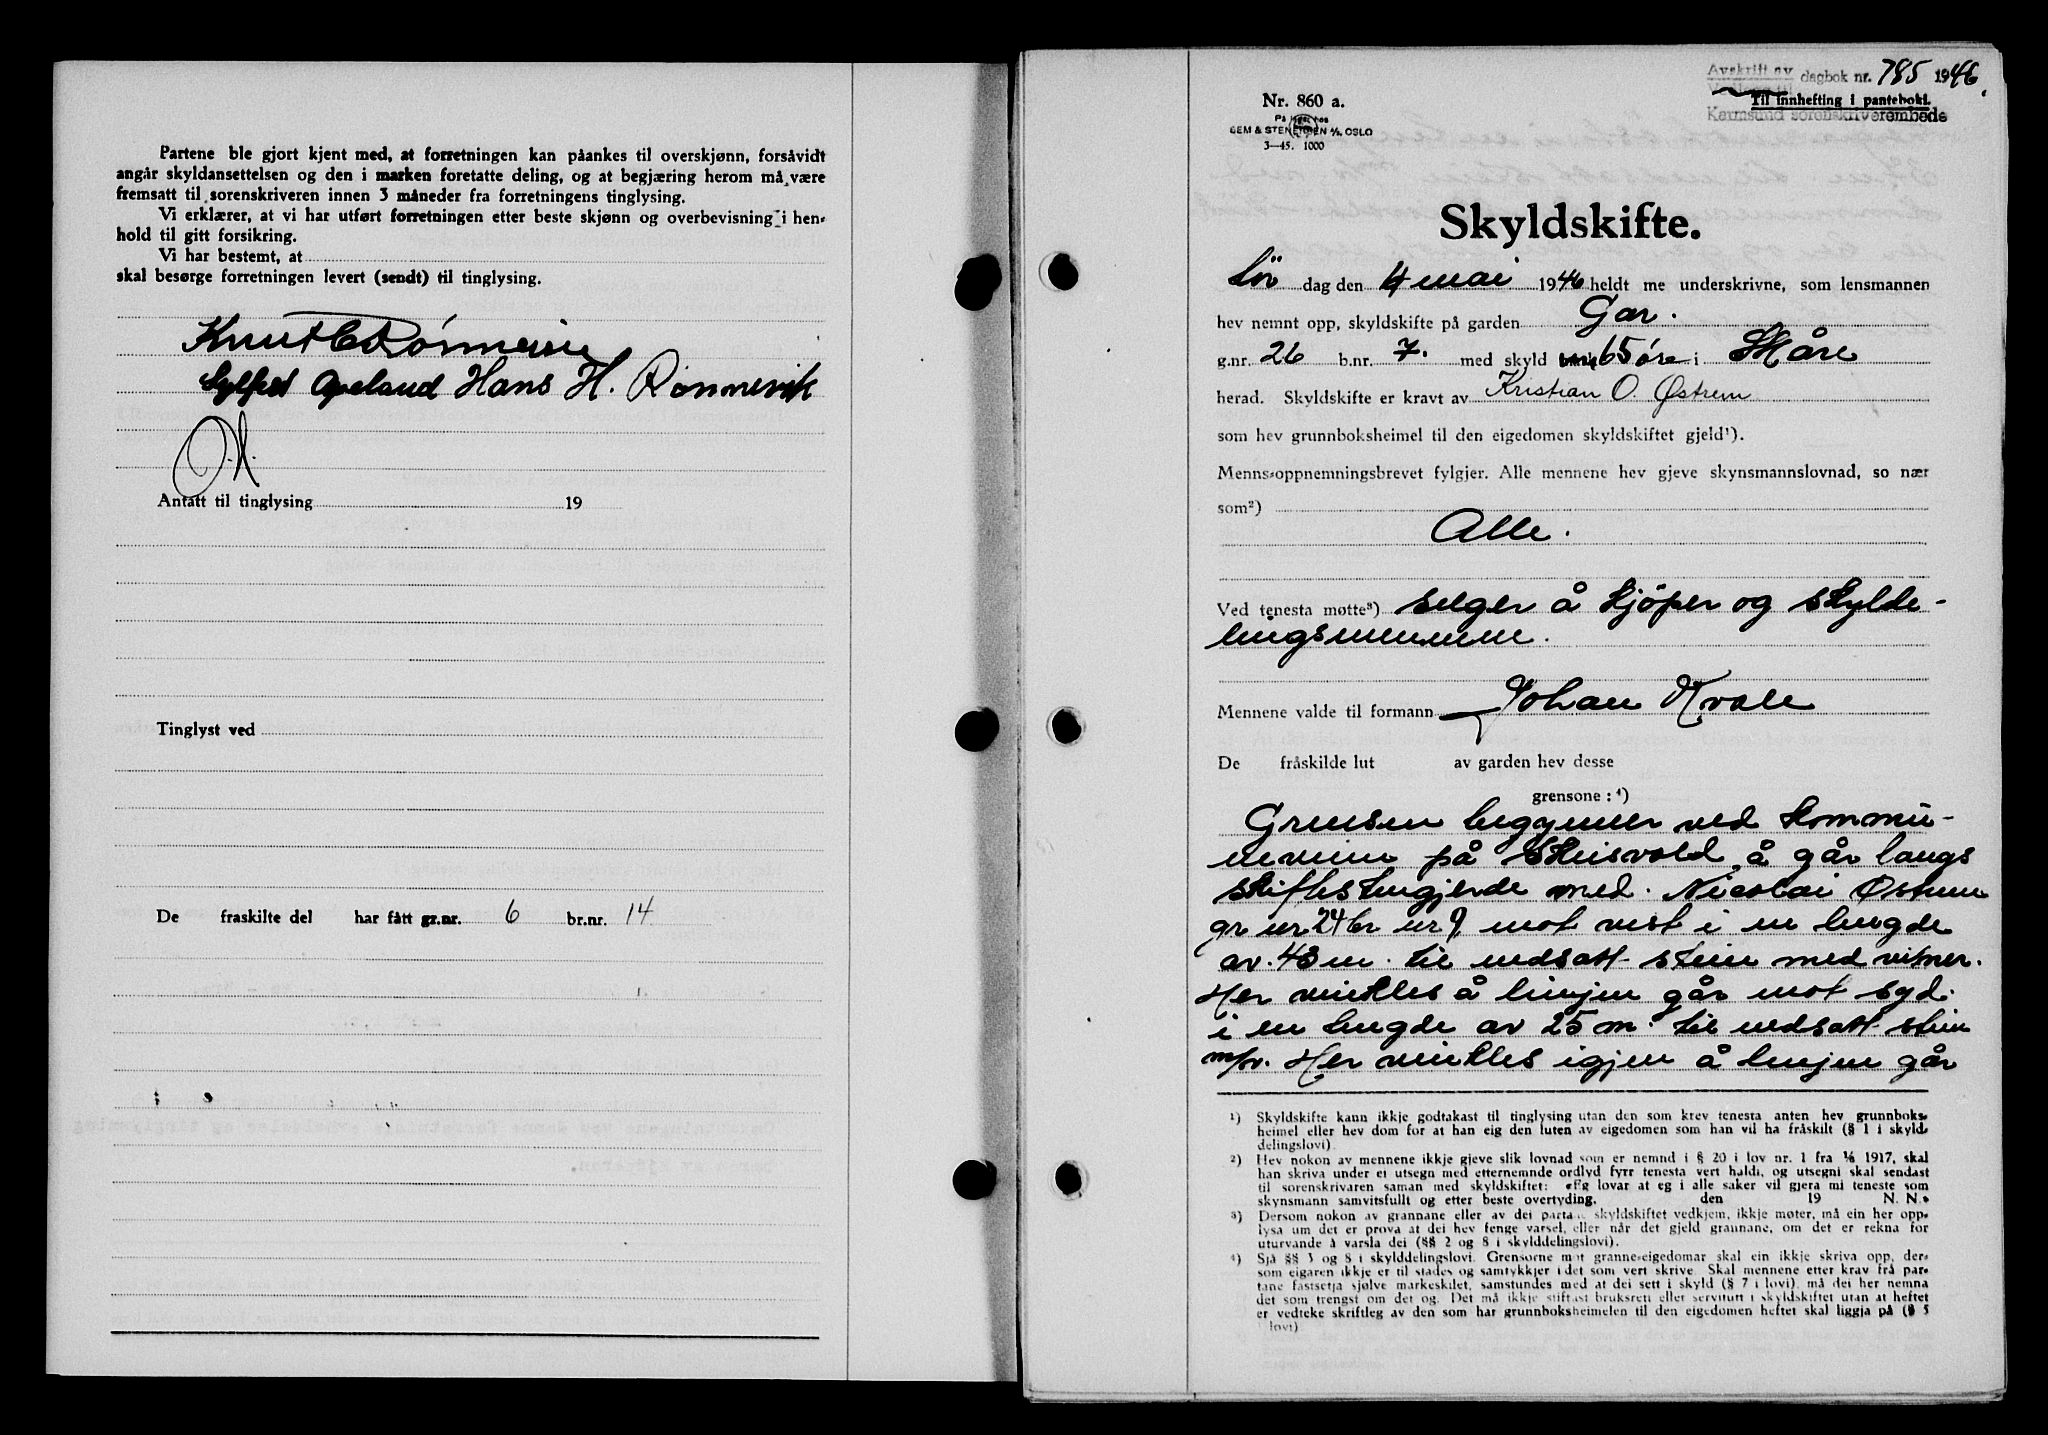 Partene ble gjort kjent med, at forretningen kan påankes til overskjønn, forsåvidt
angår skyldansettelsen og den i marken foretatte deling, og at begjæring herom må være
fremsatt til sorenskriveren innen 3 måneder fra forretningens tinglysing.
Vi erklærer, at vi har utført forretningen etter beste skjønn og overbevisning i hen-
hold til gitt forsikring.
Vi har bestemt, at
skal besørge forretningen levert (sendt) til tinglysing.
Sylfest Apeland Hans H. Rönnevik
O.H.
Antatt til tinglysing 19
Tinglyst ved
De fraskilte del har fått gr.nr. 6 br.nr. 14
Avskrift av dagbok nr. 785 1946.
Til innhefting i pantebok.
Karmsund sorenskriverembede
Nr. 860 a.
På lager hos
SEM & STENERSEN A/S, OSLO
3-45. 1000
Skyldskifte.
Lör dag den 4 mai 1946 heldt me underskrivne, som lensmannen
hev nemnt opp, skyldskifte på garden Gar.
g.nr. 26 b.nr. 7. med skyld 65 øre i Skåre
herad. Skyldskifte er kravt av Kristian O. Østrem
som hev grunnboksheimel til den eigedomen skyldskiftet gjeld¹).
Menns-oppnemningsbrevet fylgjer. Alle mennene hev gjeve skynsmannslovnad, so nær
som²)
Alle.
Ved tenesta møtte³) selger å kjöper og skylde-
lingsmennene.
Mennene valde til formann Johan Kvale
De fråskilde lut av garden hev desse
grensone: ⁴)
Grensen begynner ved kommu-
neveien på Skeisvold å går langs
skiftestengjerde med. Nicolai Østrem
gr nr 24 br nr 9, mot vest i en lengde
av. 43 m. til nedsatt stein med vitner.
Her vinkles å linjen går mot syd.
i en lengde av 25 m. til nedsatt stein
m/v. Her vinkles igjen å linjen går
¹) Skyldskifte kann ikkje godtakast til tinglysing utan den som krev tenesta anten hev grunnboks-
heimel eller hev dom for at han eig den luten av eigedomen som han vil ha fråskilt (§ 1 i skyld-
delingslovi).
²) Hev nokon av mennene ikkje gjeve slik lovnad som er nemnd i § 20 i lov nr. 1 fra 1/6 1917, skal
han skriva under et utsegn med etternemnde ordlyd fyrr tenesta vert haldi, og utsegni skal sendast
til sorenskrivaren saman med skyldskiftet: «Eg lovar at eg i alle saker vil gjera mi teneste som
skynsmann samvitsfullt og etter beste overtyding, den 19 N. N.»
³) Dersom nokon av grannane eller av dei partar skyldskiftet vedkjem, ikkje møter, må ein her opp-
lysa um det er prova at dei hev fenge varsel, eller når det gjeld grannane, om det er rekna for
uturvande å varsla dei (§§ 2 og 8 i skylddelingslovi).
⁴) Sjå §§ 3 og 8 i skylddelingslovi. Grensorne mot granne-eigedomar skal ein ikkje skriva opp, der-
som eigaren ikkje er til stades og samtykkjer i det som vert skrive. Skal mennene etter krav frå par-
tane fastsetja sjølve markeskilet, samstundes med at dei sett i skyld (§ 7 i lovi), må dei her nemna
det som trengst om det og. Det må ikkje stiftast bruksrett eller servitutt i skyldskiftet utan at heftet
er vedteke skriftleg av den som har grunnboksheimelen til den eigedomen heftet skal liggja på (§ 5
i lovi)